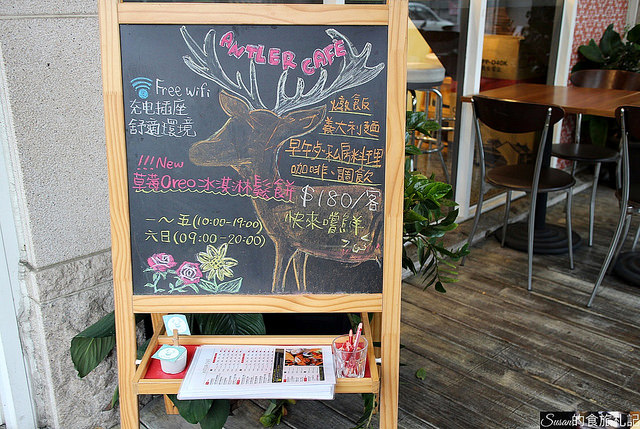 ANTLER CAFE
Free wifi
充电插座
舒適環境
燉飯
義大利麵
早午歺.私房料理
咖啡、調飲
!!!New
草莓Oreo冰淇淋鬆餅 $180/客
快來嚐鮮
一～五(10:00-19:00)
六日(09:00-20:00)
Susan的食旅札記